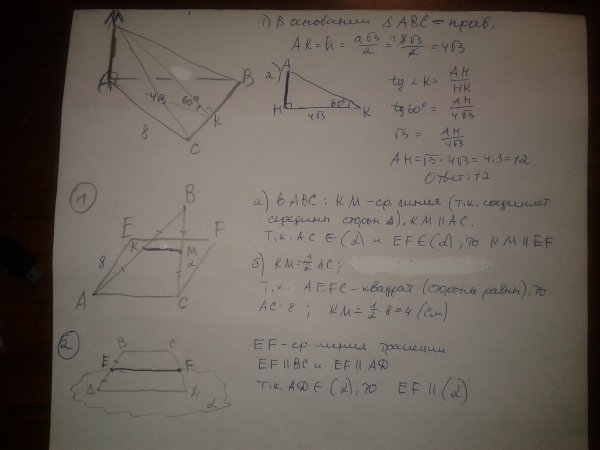 1) В основании Δ ABC = прав.
AK = h = a√3/2 = 8√3/2 = 4√3
2)
A
H
K
4√3
60°
tg ∠K = AH/HK
tg 60° = AH/4√3
√3 = AH/4√3
AH = √3 · 4√3 = 4·3 = 12
Ответ: 12
B
C
K
8
4√3
60°
1
B
E
F
K
M
2
8
A
C
а) в ABC: KM – ср. линия (т.к. соединяет
середины сторон Δ). KM || AC.
Т.к. AC ∈ (2) и EF ∈ (2), то KM || EF
б) KM = 1/2 AC;
Т.к. AEFC – квадрат (стороны равны), то
AC = 8; KM = 1/2 · 8 = 4 (см)
2
B
C
E
F
A
D
2
EF – ср. линия трапеции
EF || BC и EF || AD
Т.к. AD ∈ (2), то EF || (2)